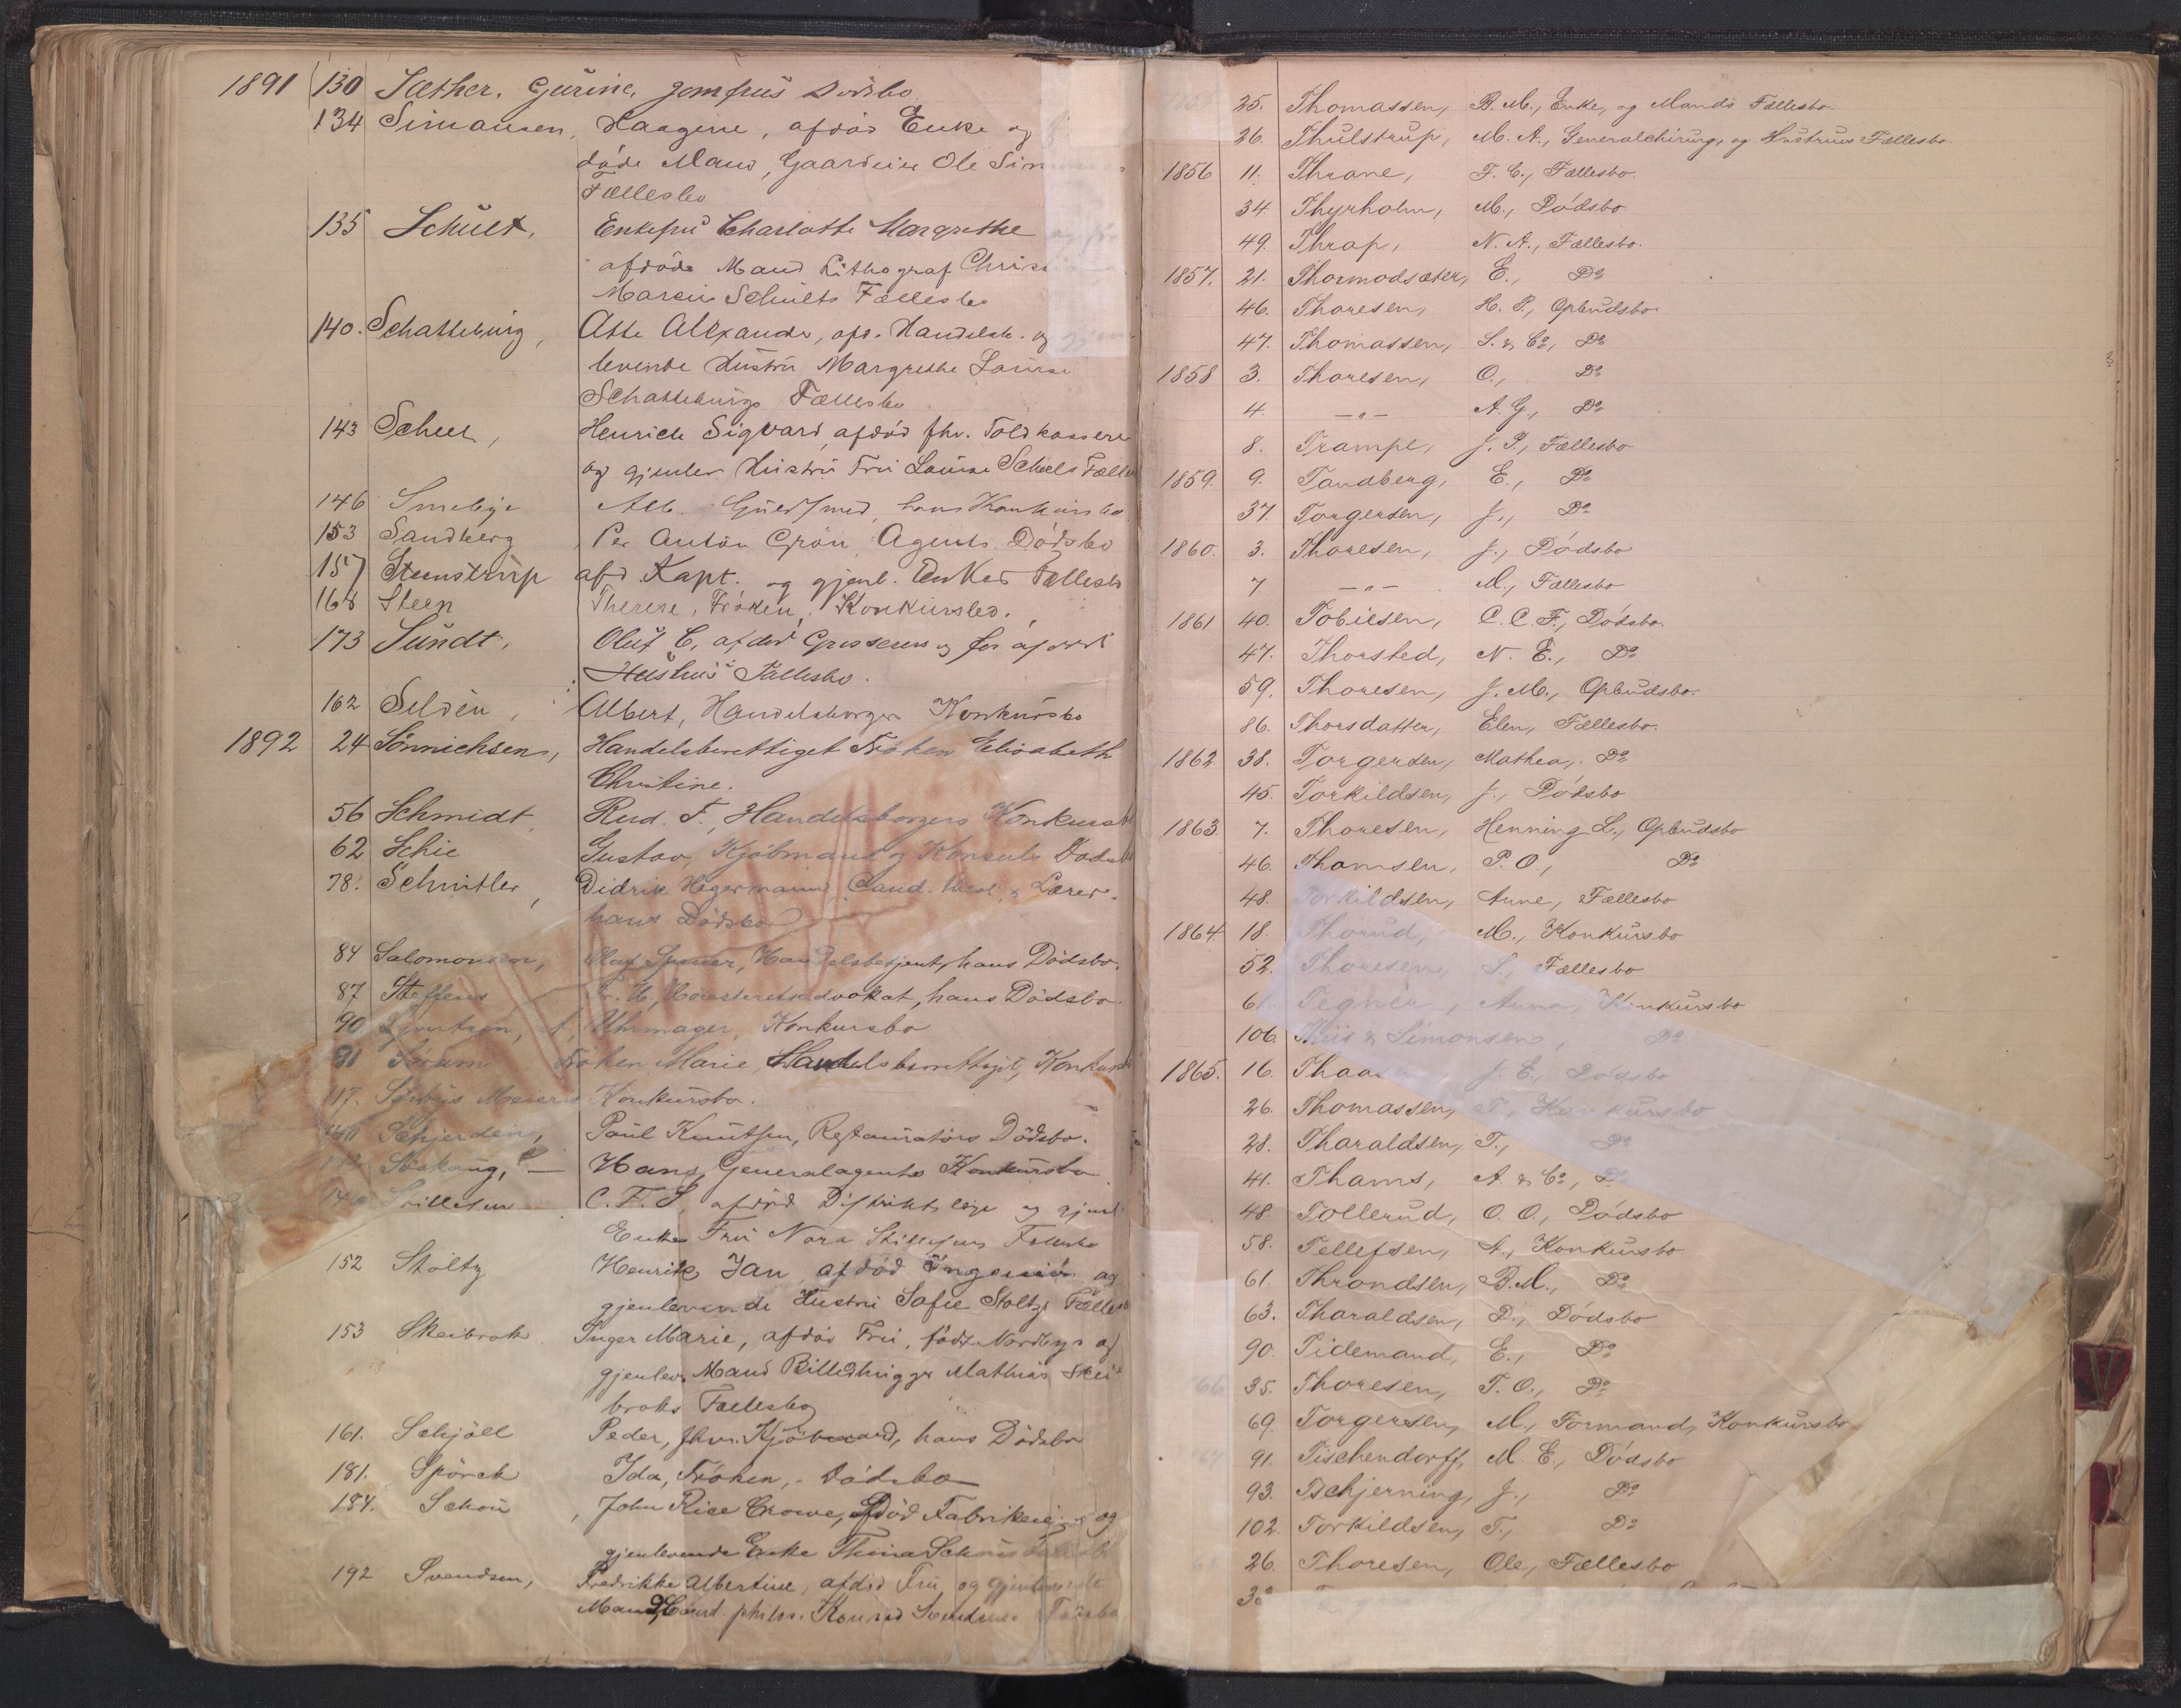 1891 130 Sæther, Gurine, Jomfrus Dödsbo
134 Simansen, Haagine, afdöd Enke og
döde Mand, Gaardeier Ole Sim
Fællesbo
135 Schult, Enkefru Charlotte Margrethe
afdöde Mand Lithograf Chris
Marcus Schults Fællesbo
140. Schatteburg, Atte Alexander, afd. Handelsb. og
levende Hustru Margrethe Louise
Schatteburgs Fællesbo
143 Scheel, Henrich Sigvard, afdöd fhv. Toldkasserer
og gjenlev Hustru Fru Louise Scheels Fælle
146 Smebye Alb. Guldsmed, hans Konkursbo
153 Sandberg, Per Anton Grön, Agents Dödsbo
157 Steenstrup afd Kapt. og gjenl. Enkes Fællesbo
168 Steen Therese, Fröken, Konkursbo.
173 Sundt, Oluf C, afdöd Grosserer og før afdöd
Hustrus Fællesbo.
162 Seldén, Albert, Handelsborger Konkursbo
1892 24 Sönnichsen, Handelsberettiget Fröken Elisabeth
Christine.
56 Schmidt, Rud. F., Handelsborgers Konkursb
62 Schie Gustav, Kjöbmand og Konsuls Dödsb
78. Schnitler, Didrik Hegermann, Cand. theol. & Lærer.
hans Dödsbo
84 Salomonsen, Spener, Handelsbetjent, hans Dödsbo.
87 Steffens Fr. H, Höiesteretsadvokat, hans Dödsbo.
90 Sivertsen, A, Uhrmager, Konkursbo
91 Sörum Fröken Marie, Handelsberettiget, Konkurs
117. Sörbys Meieri Konkursbo.
140 Skjerden, Paul Knutsen, Restauratörs Dödsbo.
Hans, Generalagents Konkursbo
Stillesen C. F. S, afdöd Distriktslæge og gjenl
Enke Fru Nora Stillesens Fællesbo
152 Stoltz Henrik Jan, afdöd Ingeniör og
gjenlevende Hustru Sofie Stoltz Fælles
153 Skeibrok Inger Marie, afdöd Fru, födt Nordbye og
gjenlev. Mand Billedhugger Mathias Skei
broks Fællesbo
161. Schjöll Peder, fhv. Kjöbmand, hans Dödsbo
181. Spörck Ida, Fröken, Dödsbo
184. Schou, John Rice Crowe, afdöd Fabrikeier og
gjenlevende Enke Thina Schous Fællesb
192 Svendsen, Fredrikke Albertine, afdöd Fru og gjenlevende
Mand, Cand. philos. Konrad Svendsens Fællesbo
25. Thomassen, B. M., Enke, og Mands Fællesbo
26. Thulstrup, M. A., Generalchirurg, og Hustrues Fællesbo.
1856 11. Thrane, F. C., Fællesbo.
34. Thyrholm, M., Dödsbo
49. Thrap, N. A., Fællesbo.
1857. 21. Thormodsæter, E., Do
46. Thoresen, H. P., Opbudsbo
47. Thomassen, S. & Co, Do
1858 3. Thoresen, O., Do
4. — " — A. G., Do
8. Trampe, J. P., Fællesbo
1859. 9. Tandberg, E., Do
37. Torgersen, J., Do
1860. 3. Thoresen, J., Dödsbo
7 — " — M., Fællesbo
1861 40. Tobiesen, C. C. F., Dödsbo
47. Thorsted, N. E., Do
59. Thoresen, J. M., Opbudsbo.
86. Thorsdatter, Elen, Fællesbo.
1862 38. Torgersen, Mathea, Do
45. Torkildsen, J., Dödsbo
1863 7. Thoresen, Henning L., Opbudsbo
46. Thomsen, P. O., Do
48. Torkildsen, Anne, Fællesbo
1864 18. Thorud, M., Konkursbo
52. Thoresen, S., Fællesbo
61. Tegnér, Anna, Konkursbo
106. Thiis & Simonsen, Do
1865. 16. J. E., Dödsbo
26. Thomassen, T., Konkursbo
28. Tharaldsen, T., Do
41. Thams, A. & Co, Do
48. Tollerud, O. O., Dödsbo
58. Tellefsen, A., Konkursbo
61 Throndsen, B. M., Do
63. Tharaldsen, D., Dödsbo
90. Tidemand, E., Do
66 35. Thoresen, T. O., Do
69. Torgersen, M., Formand, Konkursbo
67 91. Tischendorff, M. E., Dödsbo
93. Tschjerning, J., Do
102. Torkildsen, T., Do
68 26. Thoresen, Ole, Fællesbo